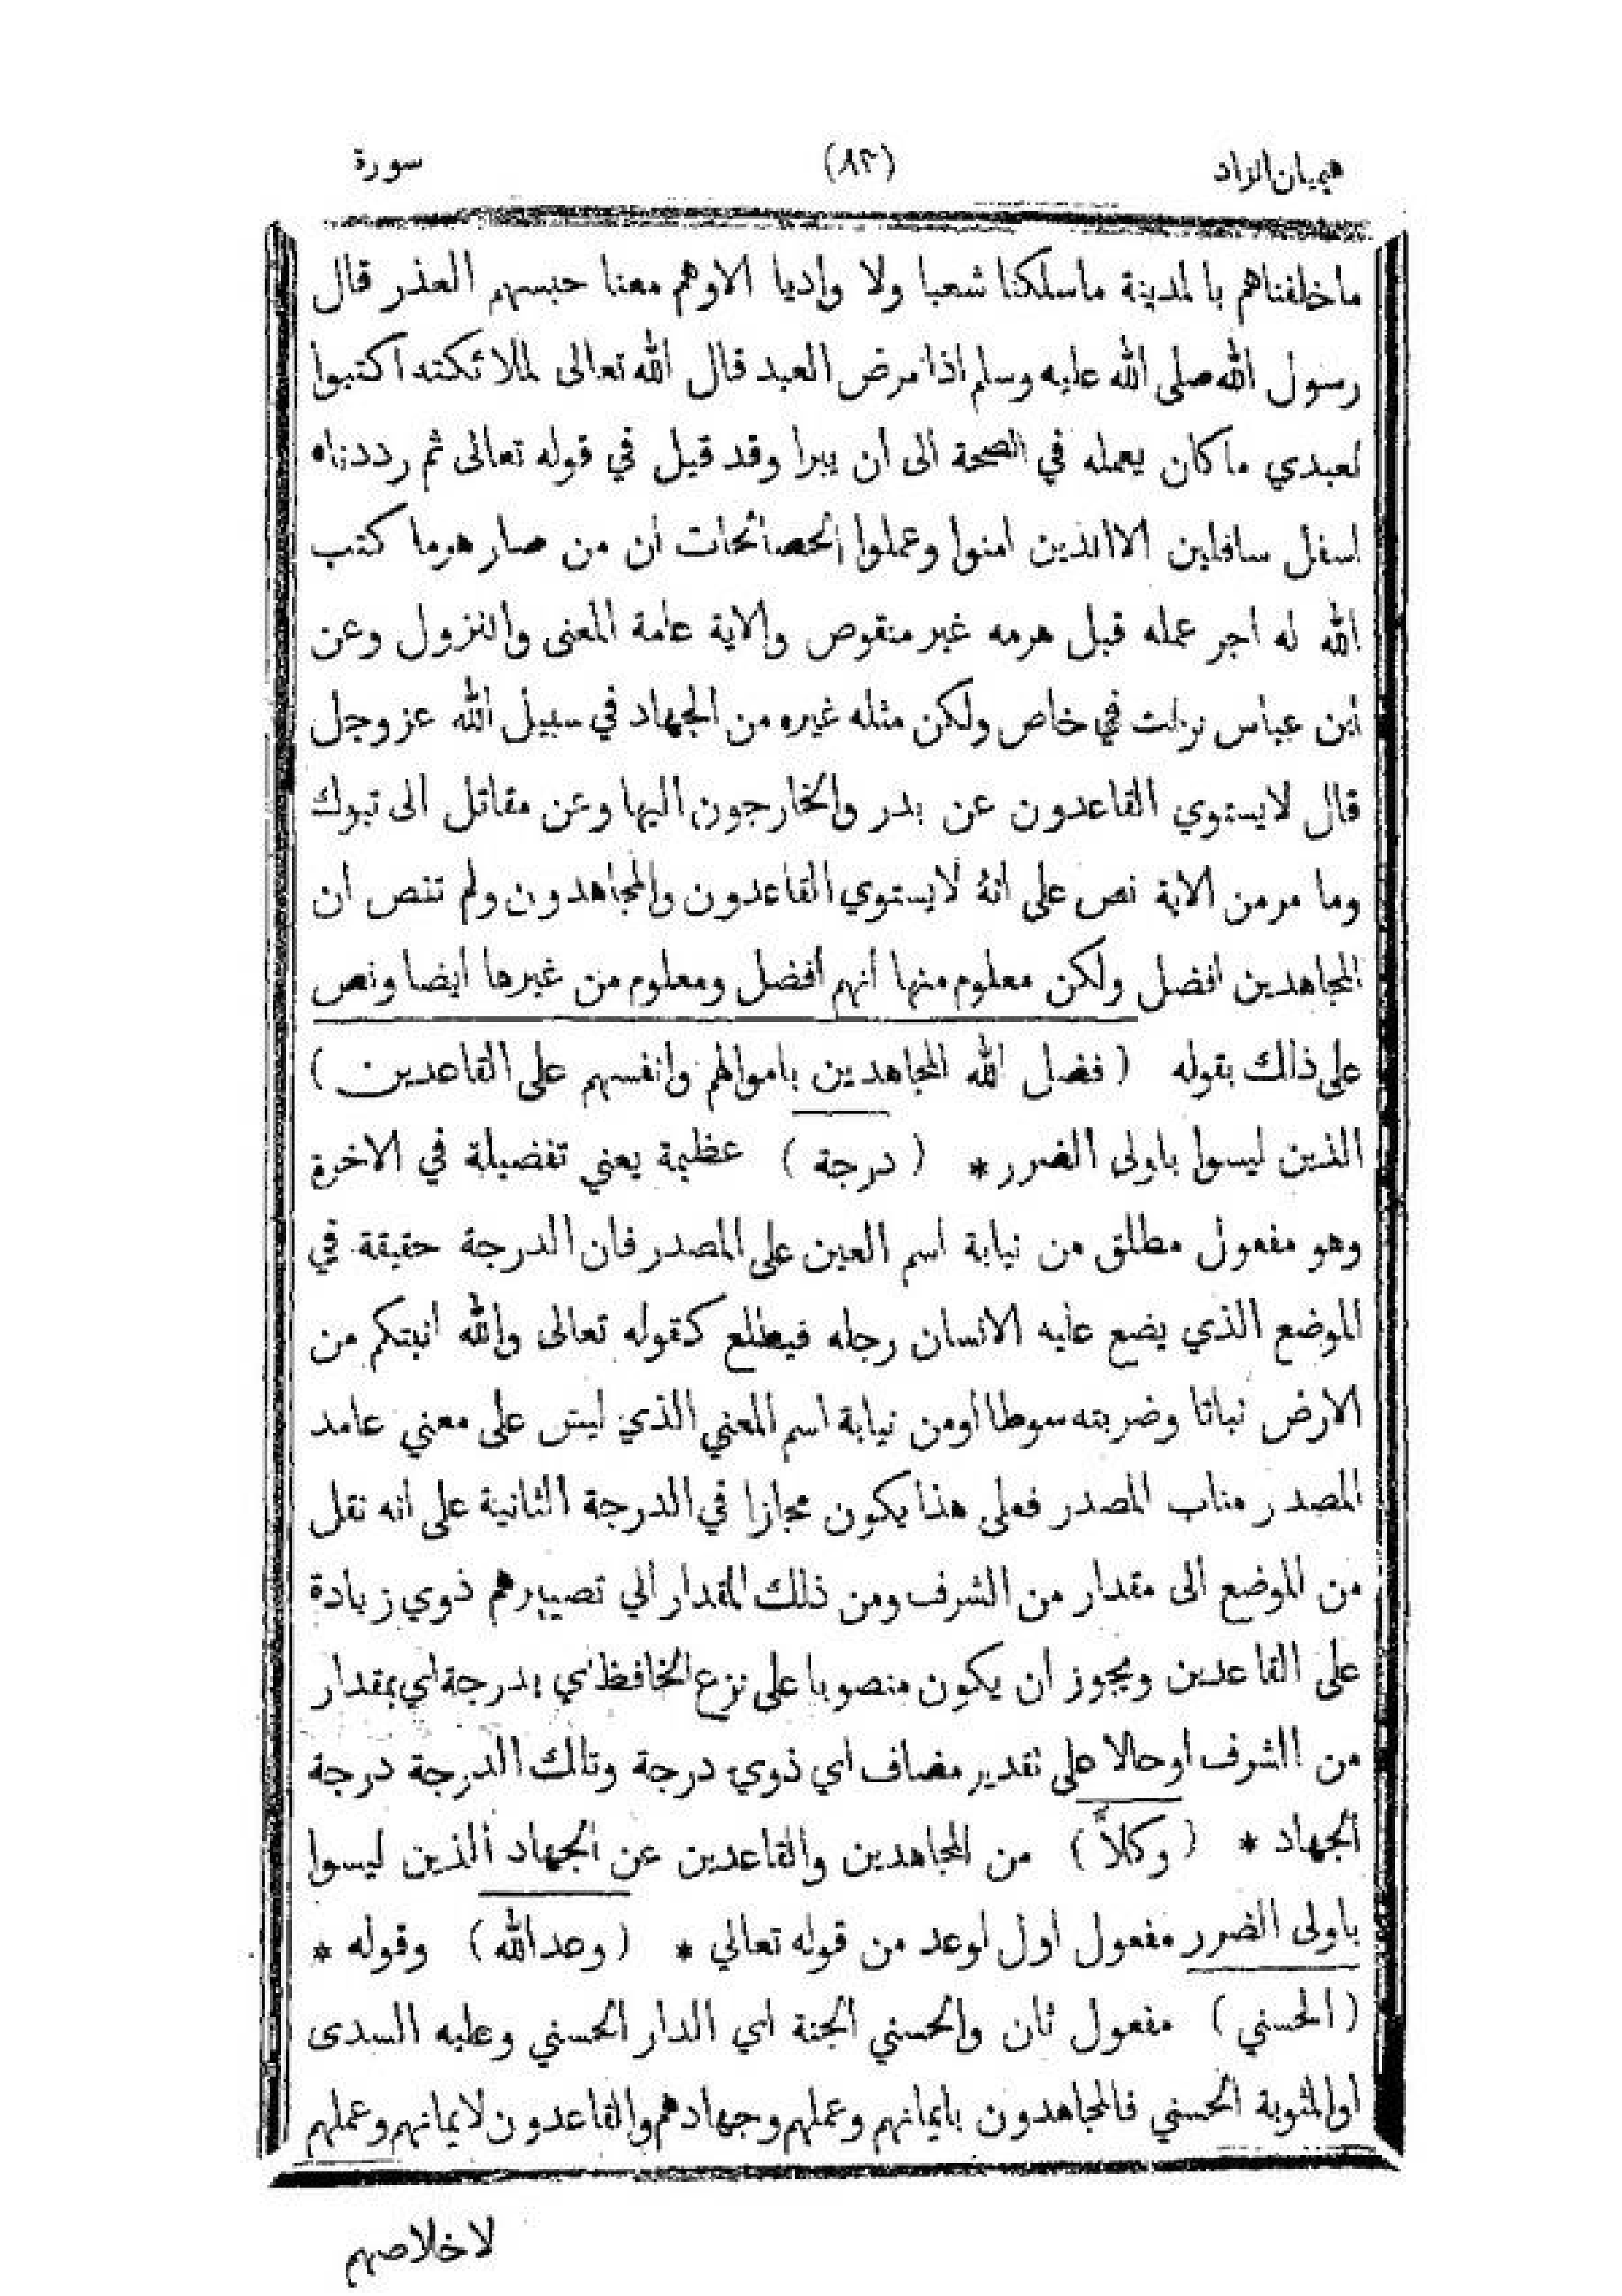 هيميان الزاد (٨٢) سورة
ما خلفناهم بالمدينة ماسلكنا شعبا ولا واديا الا وهم معنا حبسهم العذر قال
رسول الله صلى الله عليه وسلم اذا مرض العبد قال الله تعالى لملائكته اكتبوا
لعبدي ما كان يعمله في الصحة الى ان يبرا وقد قيل في قوله تعالى ثم رددناه
اسفل سافلين الا الذين امنوا وعملوا الصالحات ان من صار هرما كتب
الله له اجر عمله قبل هرمه غير منقوص والاية عامة المعنى والنزول وعن
ابن عباس نزلت في خاص ولكن مثله غيره من الجهاد في سبيل الله عز وجل
قال لايستوي القاعدون عن بدر والخارجون اليها وعن مقاتل الى تبوك
وما مر من الاية نص على انه لايستوي القاعدون والمجاهدون ولم تنص ان
المجاهدين افضل ولكن معلوم منها انهم افضل ومعلوم من غيرها ايضا ونص
على ذلك بقوله ( فضل الله المجاهدين باموالهم وانفسهم على القاعدين )
الذين ليسوا باولى الضرر * ( درجة ) عظيمة يعني تفضيلة في الاخرة
وهو مفعول مطلق من نيابة اسم العين على المصدر فان الدرجة حقيقة في
الموضع الذي يضع عليه الانسان رجله فيطلع كقوله تعالى والله انبتكم من
الارض نباتا وضربته سوطا اومن نيابة اسم المعني الذي ليس على معني عامد
المصدر مناب المصدر فعلى هذا يكون مجازا في الدرجة الثانية على انه نقل
من الموضع الى مقدار من الشرف ومن ذلك المقدار الي تصييرهم ذوي زيادة
على القاعدين ويجوز ان يكون منصوبا على نزع الخافظ اي بدرجة اي بمقدار
من الشرف اوحالا على تقدير مضاف اي ذوي درجة وتلك الدرجة درجة
الجهاد * ( وكلاً ) من المجاهدين والقاعدين عن الجهاد الذين ليسوا
باولى الضرر مفعول اول لوعد من قوله تعالي * ( وعد الله ) وقوله *
( الحسني ) مفعول ثان والحسني الجنة اي الدار الحسني وعليه السدى
اوالمثوبة الحسني فالمجاهدون بايمانهم وعملهم وجهادهم والقاعدون لايمانهم وعملهم
لاخلاصهم